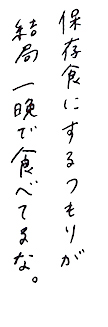 保存食にするつもりが
結局一晩で食べてるな。